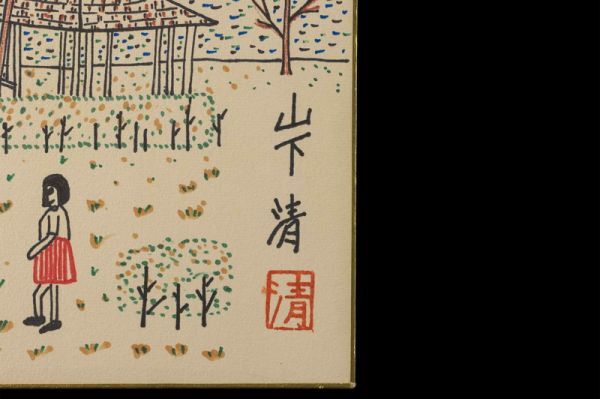 山下清
清